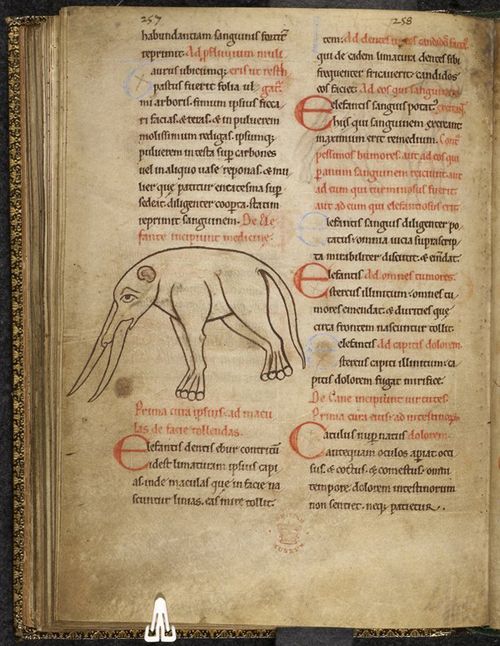 257
habundantiam sanguinis fortit
reprimit. Ad profluuium muli
aurus ubicunq; eris ut resti
pastus fuerit folia ul
mi arboris. fimum ipsius sicca
ri facias. & teras. & in puluerem
mollissimum redigas. ipsumq;
puluerem in testa sup carbones
uel in aliquo uase reponas. & mu
lier que patitur encatesma sup
sedeat. diligenter cooperta. statim
reprimit sanguinem. De Ele
fante incipiunt medicine.
Prima cura ipsius. ad macu
las de facie tollendas.
Elefantis dentis ebur contritum
idest limaturam ipsius capi
as. inde maculas que in facie na
scuntur linias. eas mire tollit.
258
tem. Ad dentes ut sint candidi faciend
qui de eadem limatura dentes sibi
frequenter fricuerit. candidos
eos faciet. Ad eos qui sanguinem
Elefantis sanguis potat excreant
his qui sanguinem excreant
maximum erit remedium. Cont
pessimos humores. aut ad eos qui
parum sanguinem reiciunt aut
ad eum qui
aut ad eum qui elefantiosus erit
Elefantis sanguis diligenter po
tatus. omnia uicia suprascrip
ta mirabiliter discutit. & emdat.
Elefantis Ad omnes tumores.
stercus illinitum. omnes tu
mores emendat. & duricies que
circa frontem nascuntur tollit.
Elefantis Ad capitis dolorem.
stercus capiti illinitum. ca
pitis dolorem fugat mirifice.
De Cane incipiunt uirtutes.
Prima cura eius. ad intestinor
Catulus nup natus dolorem.
antequam oculos apiat. occi
sus. & coctus. & comestus. omni
tempore. dolorem intestinorum
non sentiet. neq; patietur.